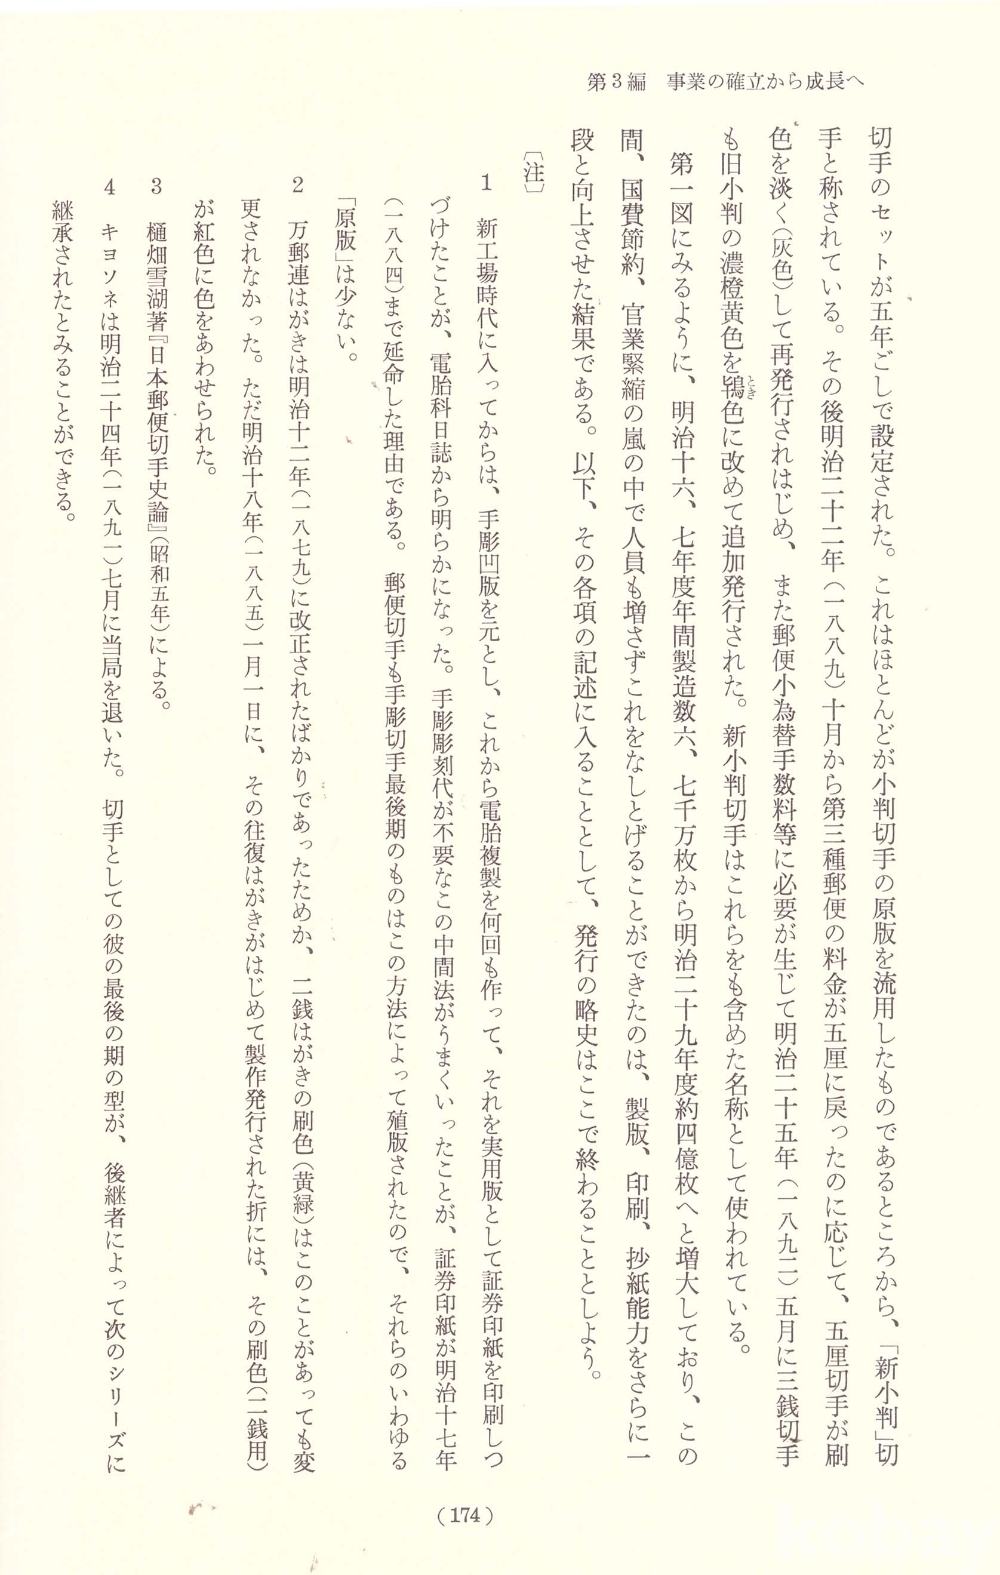 第3編　事業の確立から成長へ
切手のセットが五年ごしで設定された。これはほとんどが小判切手の原版を流用したものであるところから、「新小判」切
手と称されている。その後明治二十二年（一八八九）十月から第三種郵便の料金が五厘に戻ったのに応じて、五厘切手が刷
色を淡く（灰色）して再発行されはじめ、また郵便小為替手数料等に必要が生じて明治二十五年（一八九二）五月に三銭切手
も旧小判の濃橙黄色を鴇色に改めて追加発行された。新小判切手はこれらをも含めた名称として使われている。
とき
第一図にみるように、明治十六、七年度年間製造数六、七千万枚から明治二十九年度約四億枚へと増大しており、この
間、国費節約、官業緊縮の嵐の中で人員も増さずこれをなしとげることができたのは、製版、印刷、抄紙能力をさらに一
段と向上させた結果である。以下、その各項の記述に入ることとして、発行の略史はここで終わることとしよう。
〔注〕
1　新工場時代に入ってからは、手彫凹版を元とし、これから電胎複製を何回も作って、それを実用版として証券印紙を印刷しつ
づけたことが、電胎科日誌から明らかになった。手彫彫刻代が不要なこの中間法がうまくいったことが、証券印紙が明治十七年
（一八八四）まで延命した理由である。郵便切手も手彫切手最後期のものはこの方法によって殖版されたので、それらのいわゆる
「原版」は少ない。
2　万郵連はがきは明治十二年（一八七九）に改正されたばかりであったためか、二銭はがきの刷色（黄緑）はこのことがあっても変
更されなかった。ただ明治十八年（一八八五）一月一日に、その往復はがきがはじめて製作発行された折には、その刷色（二銭用）
が紅色に色をあわせられた。
3　樋畑雪湖著『日本郵便切手史論』（昭和五年）による。
4　キヨソネは明治二十四年（一八九一）七月に当局を退いた。切手としての彼の最後の期の型が、後継者によって次のシリーズに
継承されたとみることができる。
（174）